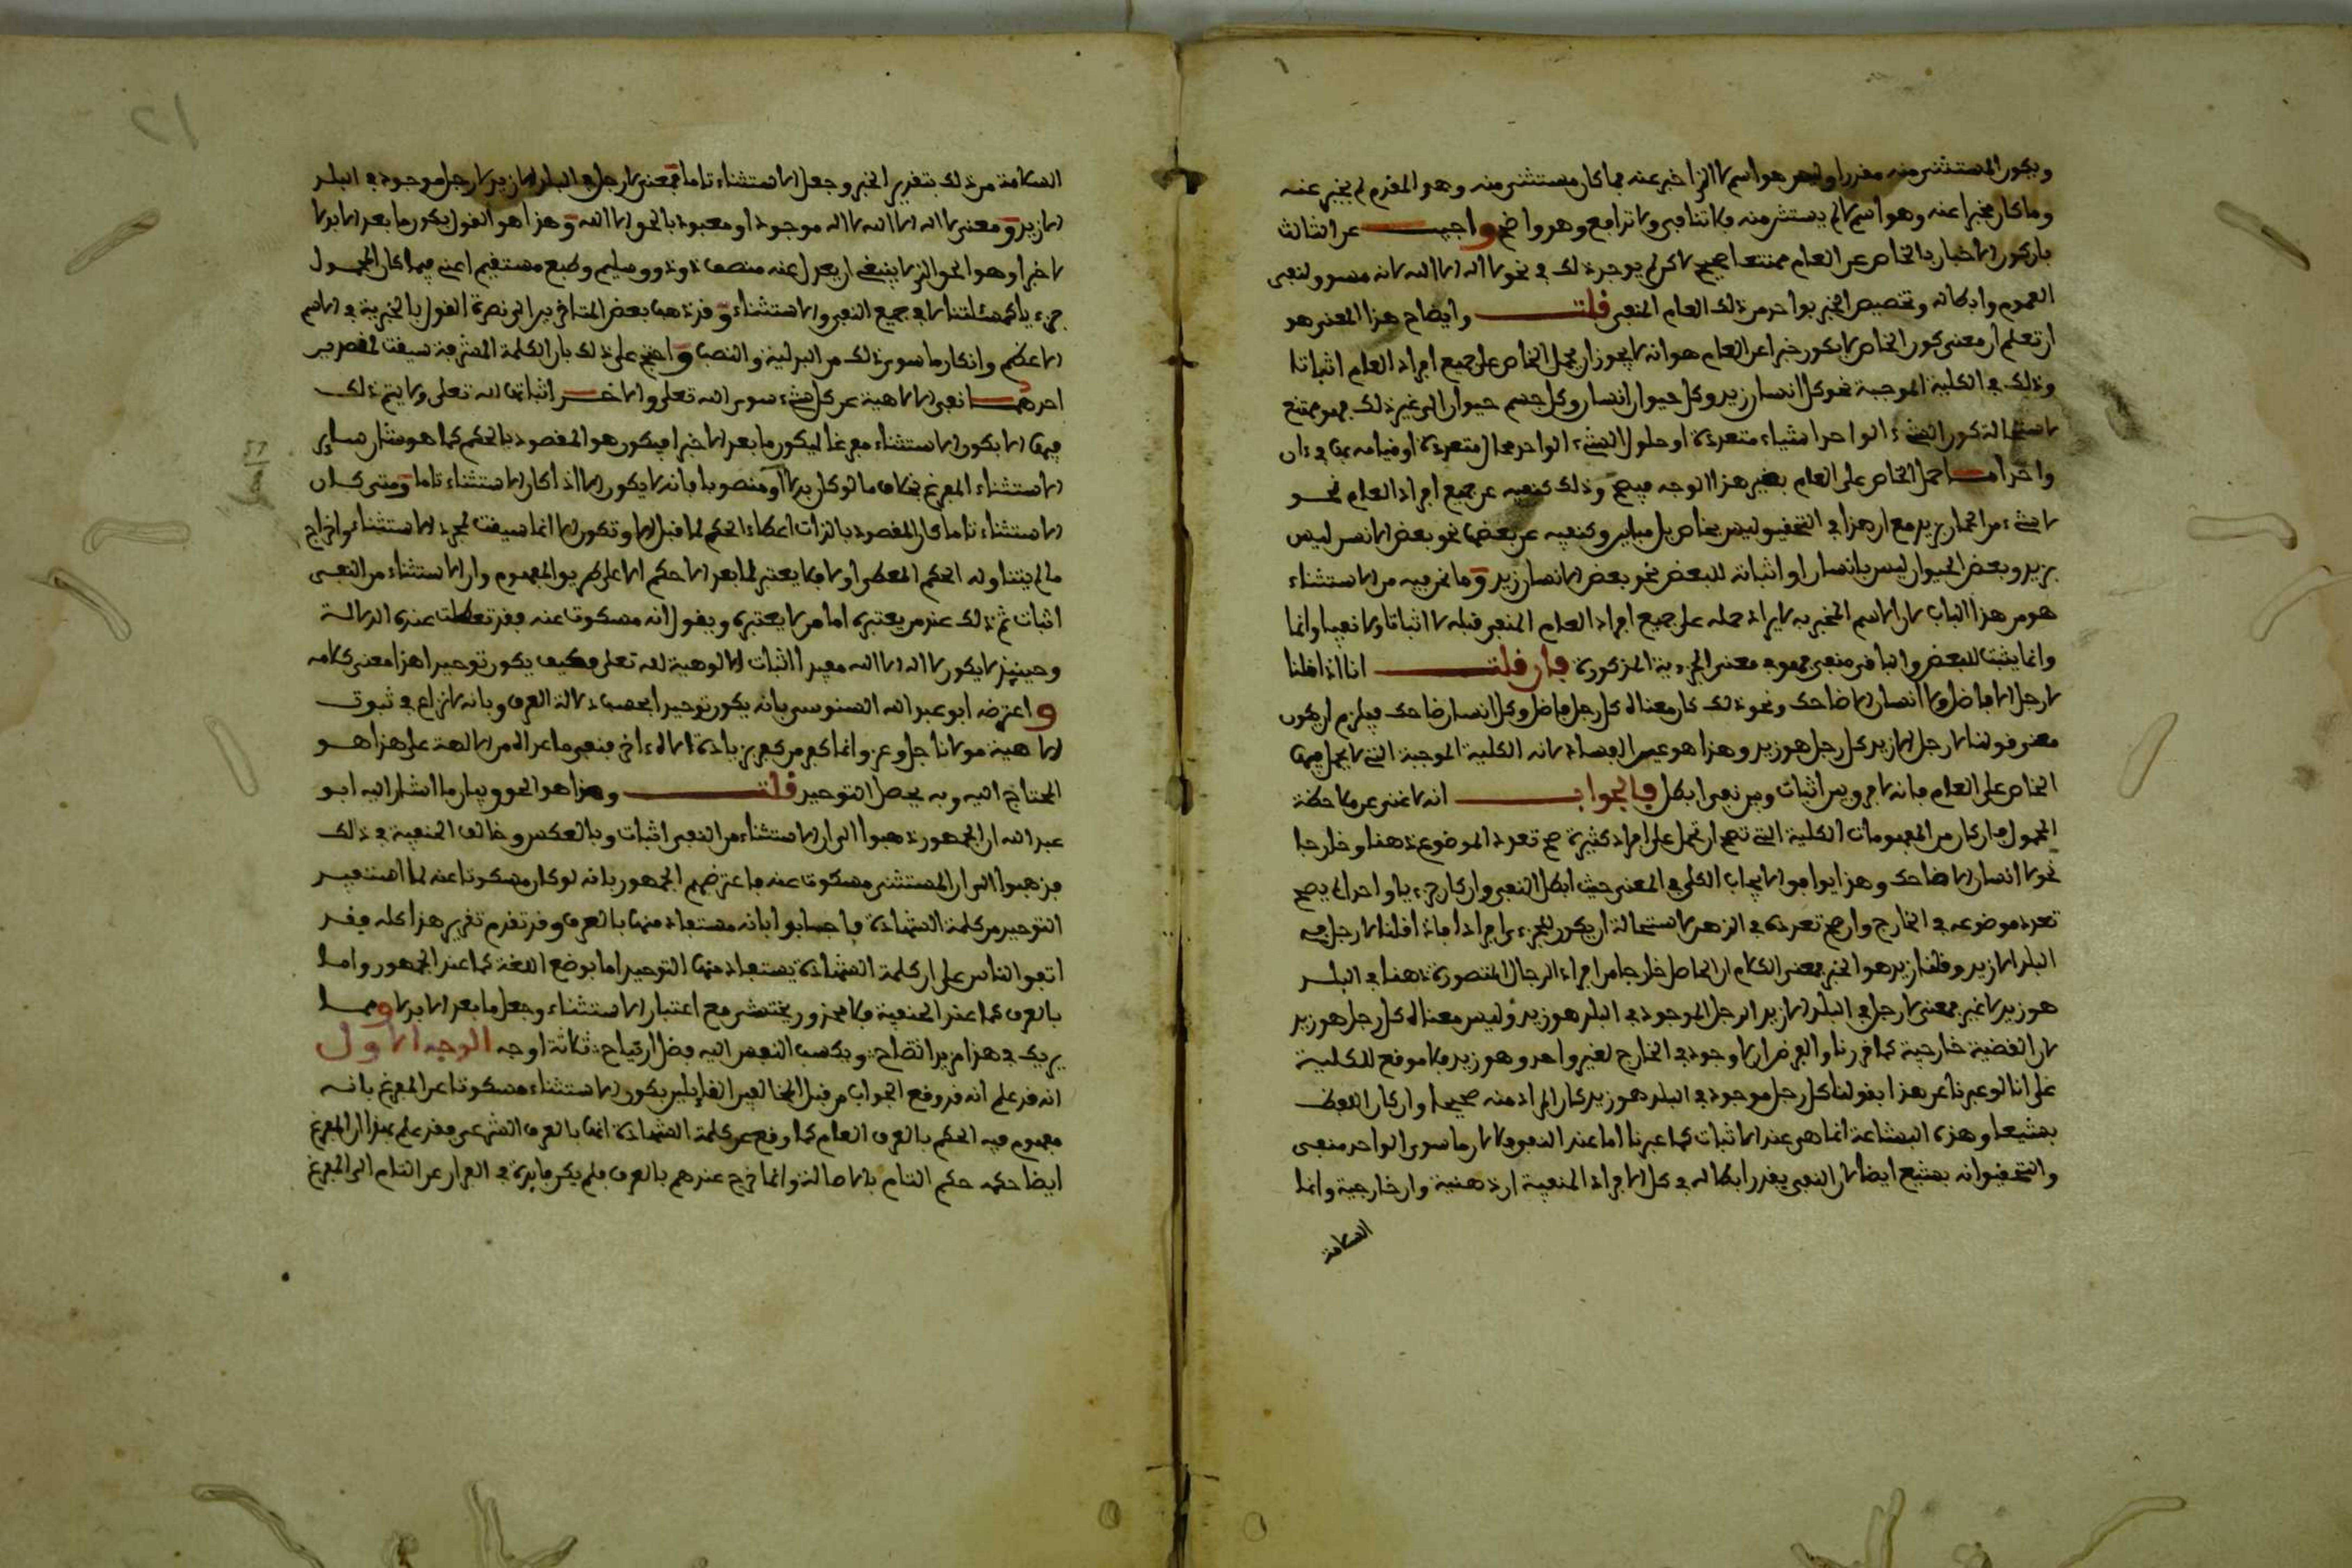 ويكون المستثنى منه مقدرا وليس هو اسم لا الذي اخبر عنه فما كان مستثنى منه وهو المقدم لم يخبر عنه
وما كان مخبرا عنه وهو اسم لا لم يستثن منه فلا تنافي ولا تدافع وهو واضح واجيب عن الثالث
بان كون الاخبار بالخاص عن العام ممتنعا صحيح لاكن لم يوجد ذلك في نحو لا اله الا الله لانه مسوق لنفي
العموم وابطاله وتخصيص الخبر بواحد من ذلك العام المنفي قلت وايضاح هذا المعنى هو
ان تعلم ان معنى كون الخاص لا يكون خبرا عن العام هو انه لا يجوز ان يحمل الخاص على جميع افراد العام اثباتا
وذلك في الكلية الموجبة نحو كل انسان زيد وكل حيوان انسان وكل جسم حيوان الى غير ذلك فهو ممتنع
لاستحالة كون الشيء الواحد اشياء متعددة او حلول الشيء الواحد محال متعددة او قيامه بها في ءان
واحد اما حمل الخاص على العام بغير هذا الوجه فيصح وذلك كنفيه عن جميع افراد العام نحو
لا شيء من الحمار بزيد مع ان هذا في التحقيق ليس بخاص بل مباين وكنفيه عن بعضها نحو بعض الانسن ليس
بزيد وبعض الحيوان ليس بانسان او اثباته للبعض نحو بعض الانسان زيد وما نحن فيه من الاستثناء
هو من هذا الباب لان الاسم المخبر به لا يراد حمله على جميع افراد العام المنفي قبله لا اثباتا ولا نفيا وانما
وانما يثبت للبعض والباقي منفي فهو في معنى الجزءية المذكورة فان قلت انا اذا قلنا
لا رجل الا فاضل ولا انسان الا ضاحك ونحو ذلك كان معناه كل رجل فاضل وكل انسان ضاحك فيلزم ان يكون
معنى قولنا لا رجل الا زيد كل رجل هو زيد وهذا هو عين الفساد لانه الكلية الموجبة التي لا يحمل فيها
الخاص على العام فانه لا فرق بين اثبات وبين نفي ابطل فالجواب انه لا غنى عن ملاحظة
المحمول فان كان من المفهومات الكلية التي تصح ان تحمل على افراد كثيرة صح تعدد الموضوع ذهنا وخارجا
نحو لا انسان الا ضاحك وهذا يوافق الايجاب الكلي في المعنى حيث ابطل النفي وان كان جزءيا واحدا لم يصح
تعدد موضوعه في الخارج وان صح تعدده في الذهن لاستحالة ان يكون للجزءي افراد فاذا قلنا لا رجل في
البلد الا زيد وقلنا زيد هو الخبر فمعنى الكلام ان الحاصل خارجا من افراد الرجال المتصورة ذهنا في البلد
هو زيد لا غير بمعنى لا رجل في البلد الا زيد الرجل الموجود في البلد هو زيد وليس معناه كل رجل هو زيد
لان القضية خارجية كما قررنا والفرض ان لا وجود في الخارج لغير واحد وهو زيد فلا موقع للكلية
على انا لو عبرنا عن هذا بقولنا كل رجل موجود في البلد هو زيد كان المراد منه صحيحا وان كان اللفظ
بشيعا وهذه البشاعة انما هي عند الاثبات كما عبرنا اما عند النفي فلا لان ما سوى الواحد منفي
والتحقيق انه بشيع ايضا لان النفي يقدر ابطاله في كل الافراد المنفية ان ذهنية وان خارجية وانما
السلامة
السلامة من ذلك بتقدير الخبر وجعل الاستثناء تاما فمعنى لا رجل في البلد الا زيد لا رجل موجود في البلد
الا زيد ومعنى لا اله الا الله لا اله موجود او معبود بالحق الا الله وهذا هو القول بكون ما بعد الا بدلا
لا خبرا وهو الحق الذي لا ينبغي ان يعدل عنه منصف ذو ذوق سليم وطبع مستقيم اعني فيما كان المحمول
جزءيا كمسئلتنا لا في جميع النفي والاستثناء وقد ذهب بعض المتاخرين الى نصرة القول بالخبرية في الاسم
الاعظم وانكار ما سوى ذلك من البدلية والنصب واحتج على ذلك بان الكلمة المشرفة سيقت لقصدين
احدهما نفي الالاهية عن كل شيء سوى الله تعلى والاخر اثباتها لله تعلى ولا يتم ذلك
فيها الا بكون الاستثناء مفرغا ليكون ما بعد الا خبرا فيكون هو المقصود بالحكم كما هو شان سائر
الاستثناء المفرغ بخلاف ما لو كان بدلا او منصوبا فانه لا يكون الا اذا كان الاستثناء تاما ومتى كان
الاستثناء تاما كان المقصود بالذات اعطاء الحكم لما قبل الا وتكون الا انما سيقت لمجرد الاستثناء واخراج
ما لم يتناوله الحكم المعطى اولا فلا يعتبر لما بعد الا حكم الا على طريق المفهوم وان الاستثناء من النفي
اثبات ثم ذلك عند من يعتبره اما من لا يعتبره ويقول انه مسكوت عنه فقد تعطلت عنده الدلالة
وحينئذ لا يكون لا اله الا الله مفيدا اثبات الالوهية لله تعلى فكيف يكون توحيدا هذا معنى كلامه
واعترضه ابو عبد الله السنوسي بانه يكون توحيدا بحسب دلالة العرف وبانه لا نزاع في ثبوت
الاهية مولانا جل وعز وانما كفر من كفر بزيادة الاه ءاخر فنفي ما عداه من الالهة على هذا هو
المحتاج اليه وبه يحصل التوحيد قلت وهذا هو الحق وبيان ما اشار اليه ابو
عبد الله ان الجمهور ذهبوا الى ان الاستثناء من النفي اثبات وبالعكس وخالف الحنفية في ذلك
فذهبوا الى ان المستثنى مسكوت عنه فاعترضهم الجمهور بانه لو كان مسكوتا عنه لما استفيد
التوحيد من كلمة الشهادة فاجابوا بانه مستفاد منها بالعرف وقد تقدم تقرير هذا كله فقد
اتفق الناس على ان كلمة الشهادة يستفاد منها التوحيد اما بوضع اللغة كما عند الجمهور واما
بالعرف كما عند الحنفية فلا محذور يختشى مع اعتبار الاستثناء وجعل ما بعد الا بدلا ومما
يزيدك في هذا مزيد اتضاح ويكسب النفس اليه فضل ارتياح ثلاثة اوجه الوجه الاول
انه قد علم انه قد وقع الجواب من قبل المخالفين القائلين بكون الاستثناء مسكوتا عن المفرغ بانه
مفهوم فيه الحكم بالعرف العام كما وقع عن كلمة الشهادة انها بالعرف الشرعي فقد علم بهذا ان المفرغ
ايضا حكمه حكم التام بالاصالة وانما خرج عندهم بالعرف فلم يكن فايدة في الفرار عن التام الى المفرغ